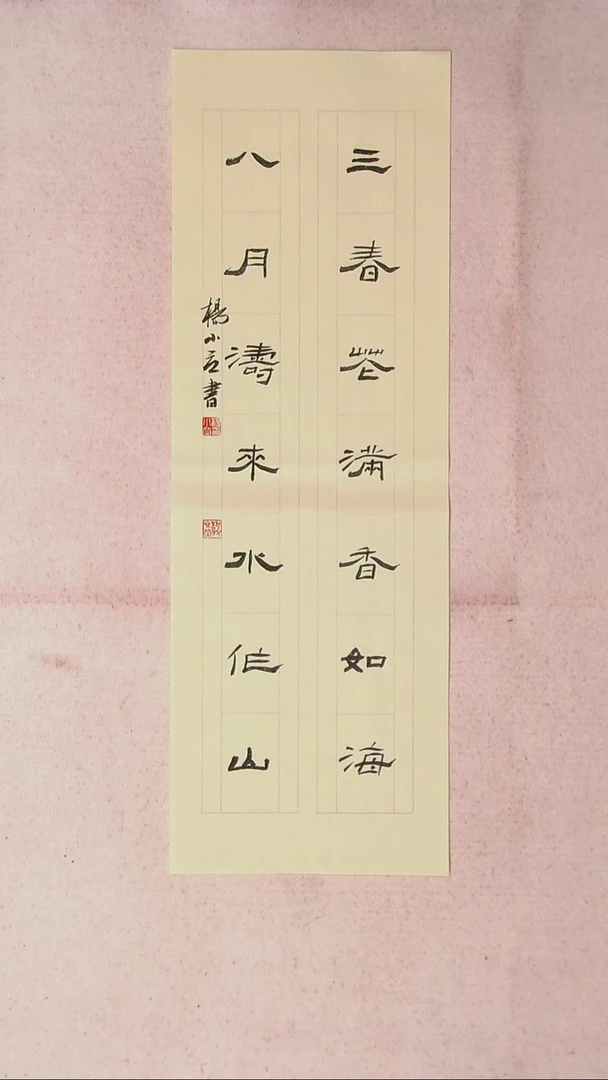 三春花滿香如海
八月濤來水作山
楊小言書